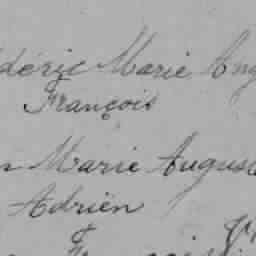 déric Marie Aug
François
n Marie Augus
Adrien